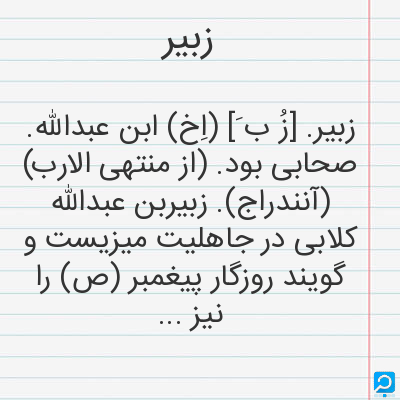 زبیر
زبیر. [زُ ب َ] (اِخ) ابن عبداللّه.
صحابی بود. (از منتهی الارب)
(آنندراج). زبیربن عبداللّه
کلابی در جاهلیت میزیست و
گویند روزگار پیغمبر (ص) را
نیز ...